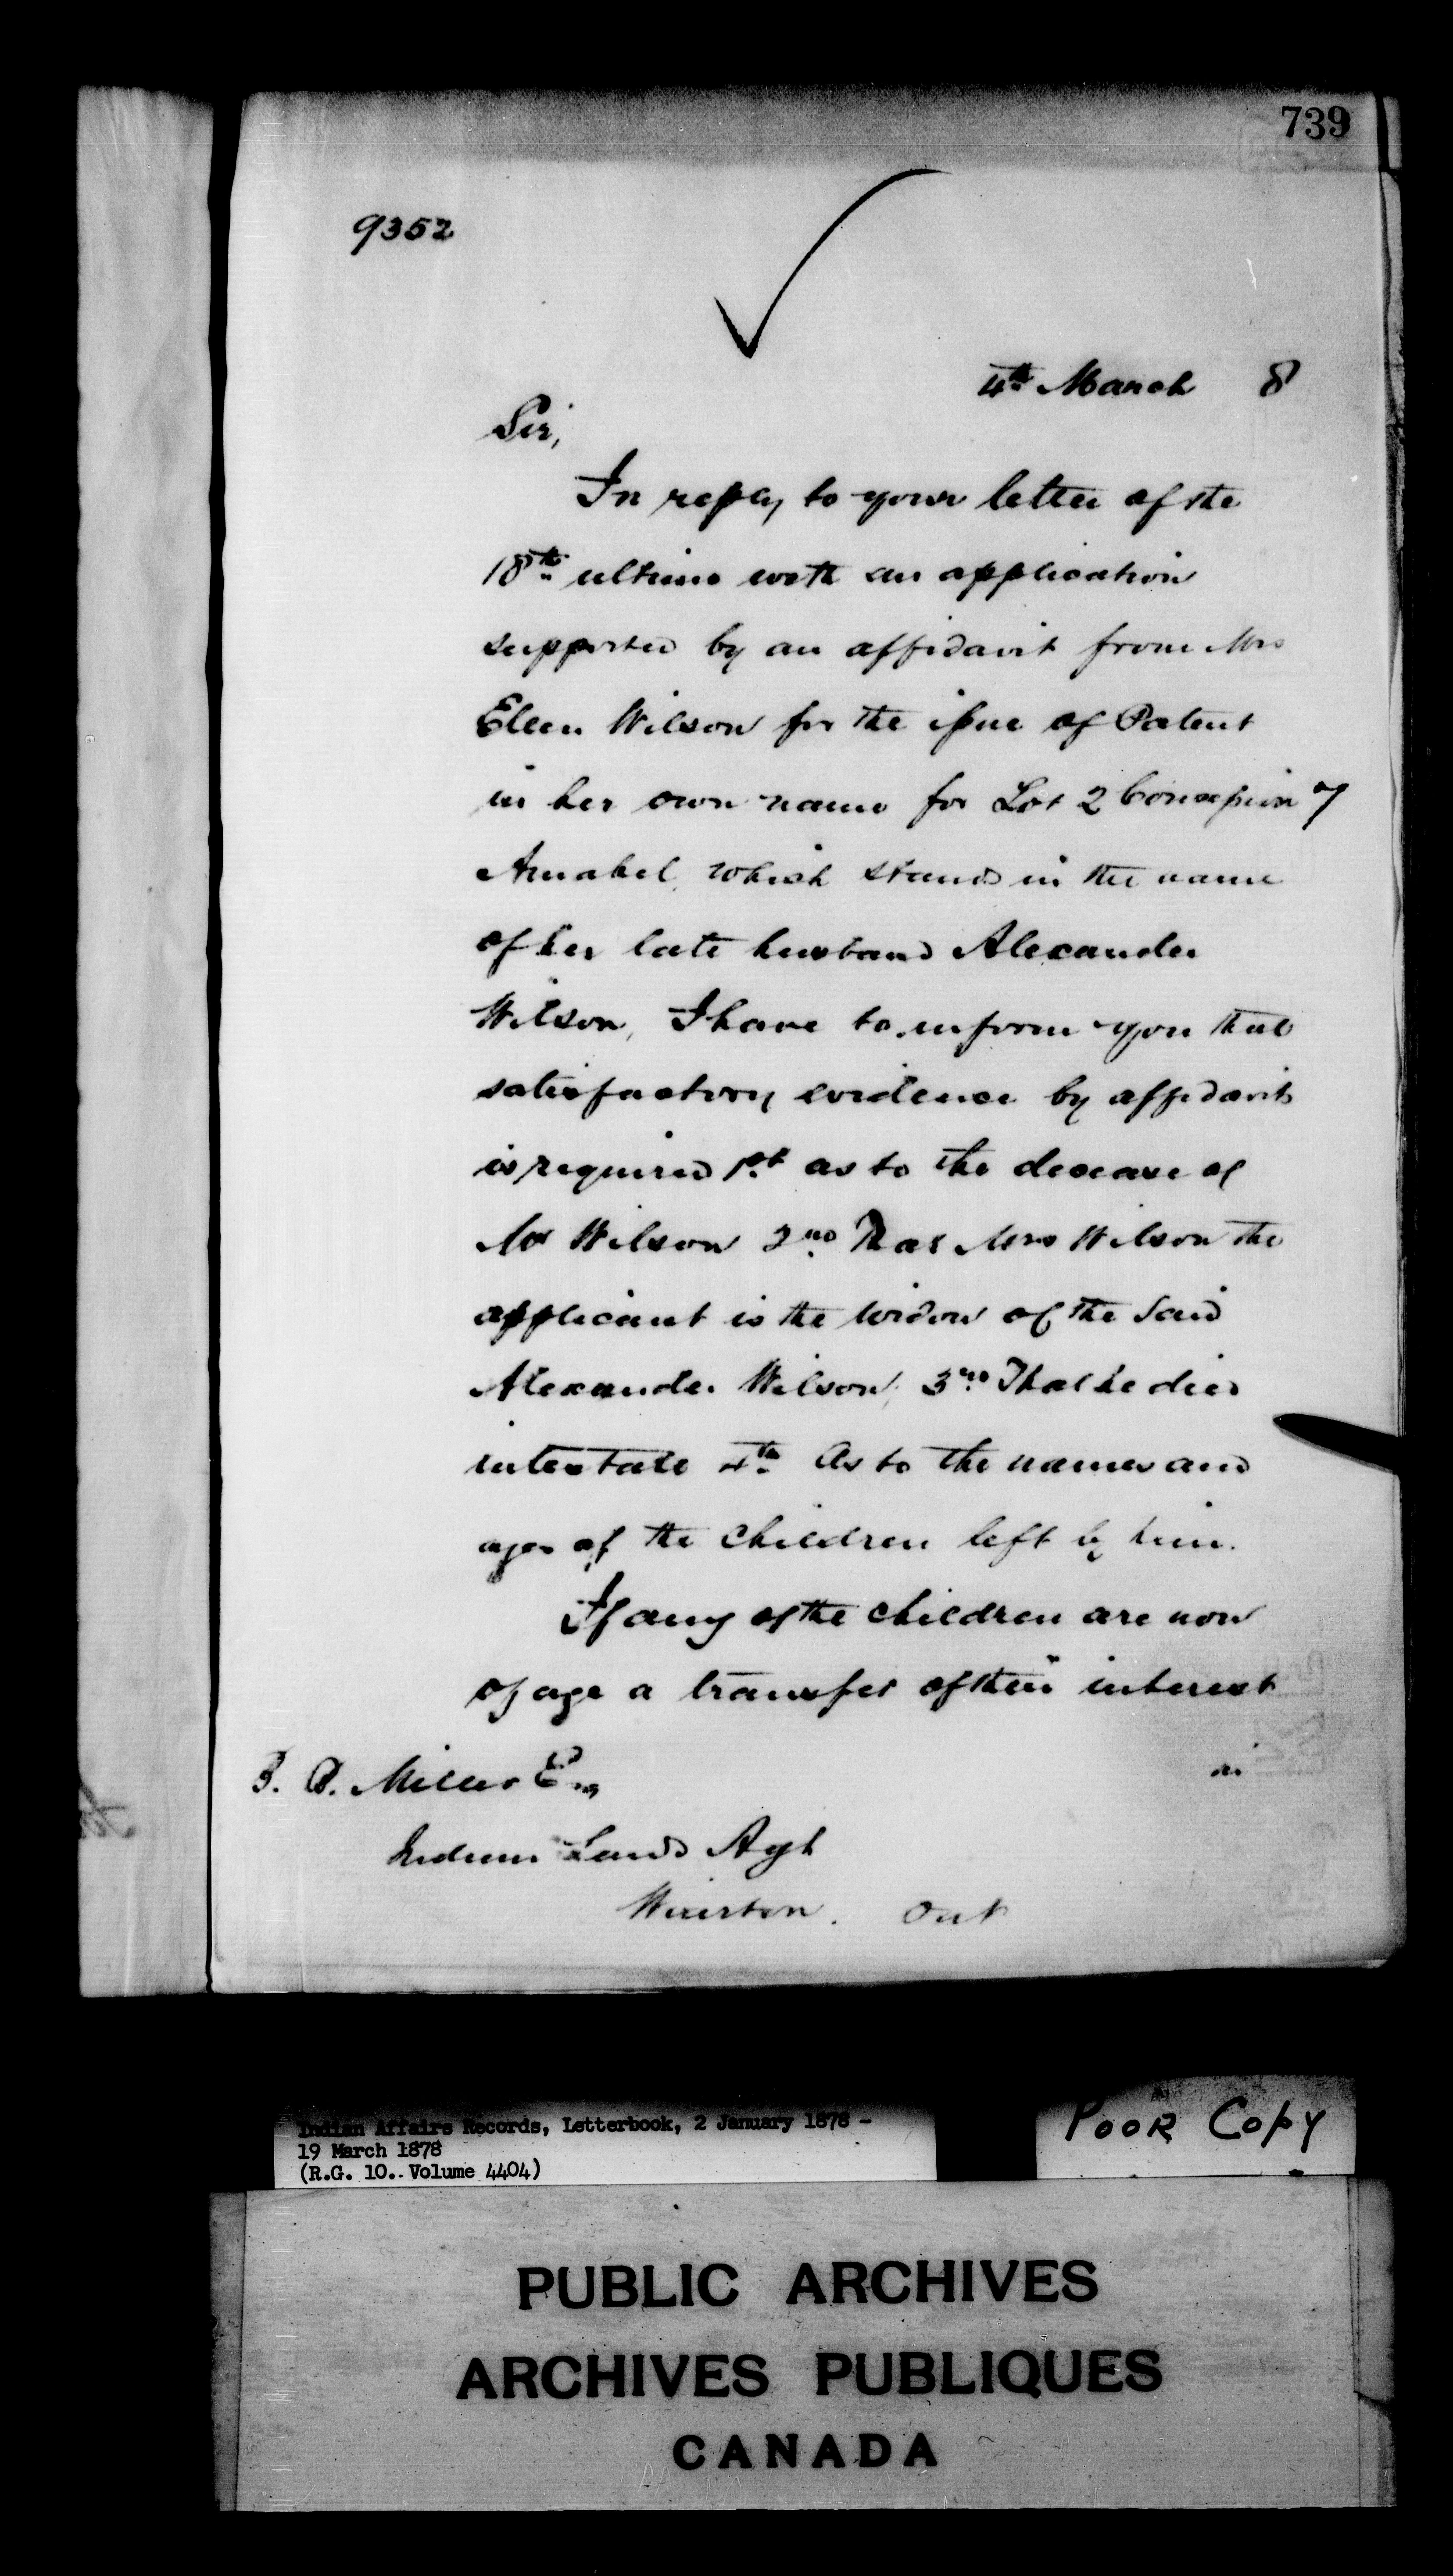 739
9352
4th March 8
Sir,
In reply to your letter of the
18th ultimo with an application
supported by an affidavit from Mrs
Ellen Wilson for the issue of Patent
in her own name for Lot 2 Concession 7
Amabel which stands in the name
of her late husband Alexander
Wilson, I have to inform you that
satisfactory evidence by affidavit
is required 1st as to the decease of
Mr Wilson 2nd That Mrs Wilson the
applicant is the widow of the said
Alexander Wilson, 3rd That he died
intestate 4th As to the names and
ages of the children left by him.
If any of the children are now
of age a transfer of their interest
in
B. B. Miller Esq
Indian Lands Agt
Wiarton. Ont
Indian Affairs Records, Letterbook, 2 January 1878 -
19 March 1878
(R.G. 10.. Volume 4404)
POOR COPY
PUBLIC ARCHIVES
ARCHIVES PUBLIQUES
CANADA